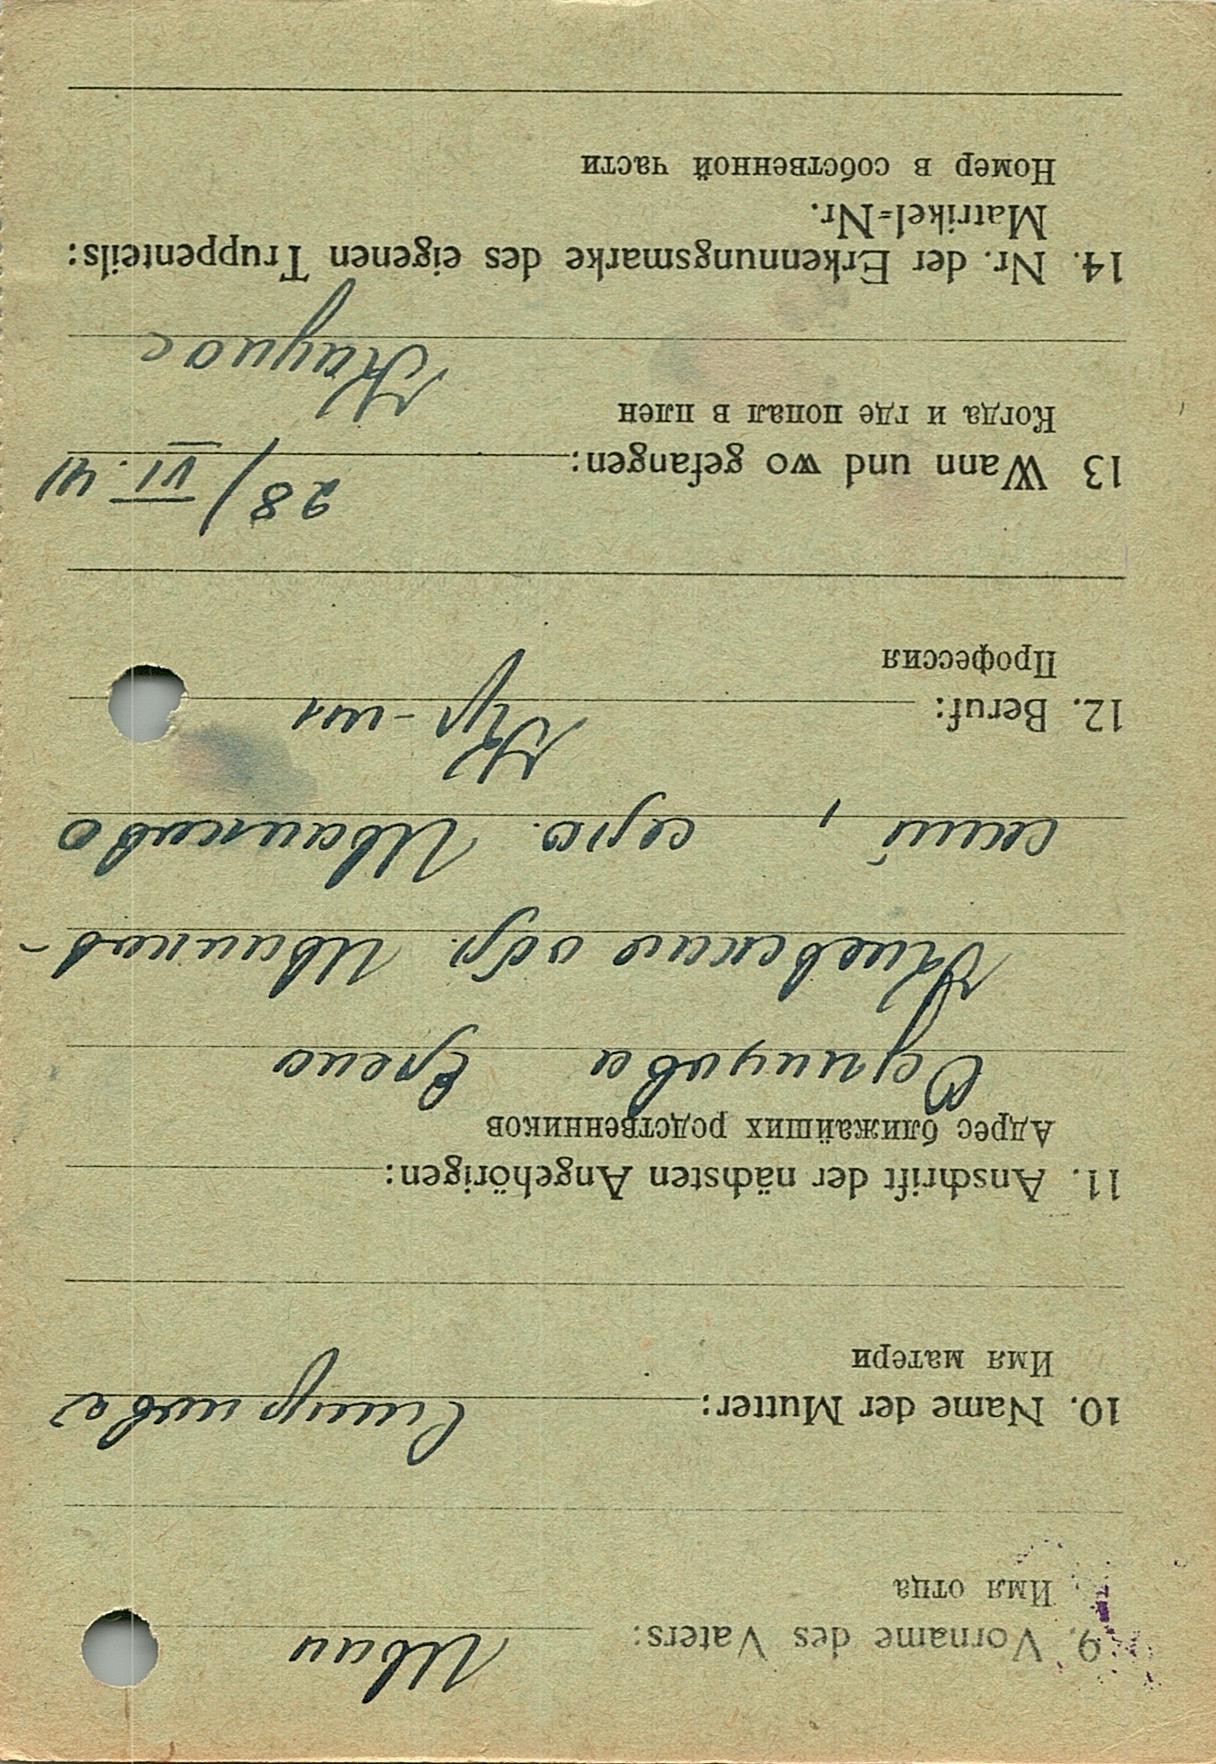 9. Vorname des Vaters: Иван
Имя отца
10. Name der Mutter:
Имя матери
11. Anschrift der nächsten Angehörigen:
Адрес ближайших родственников
Киевская обл. Иванков-
ский, село. Иванково
12. Beruf:
Профессия
13 Wann und wo gefangen: 28/VI.41
Когда и где попал в плен
Каунас
14. Nr. der Erkennungsmarke des eigenen Truppenteils:
Matrikel=Nr.
Номер в собственной части